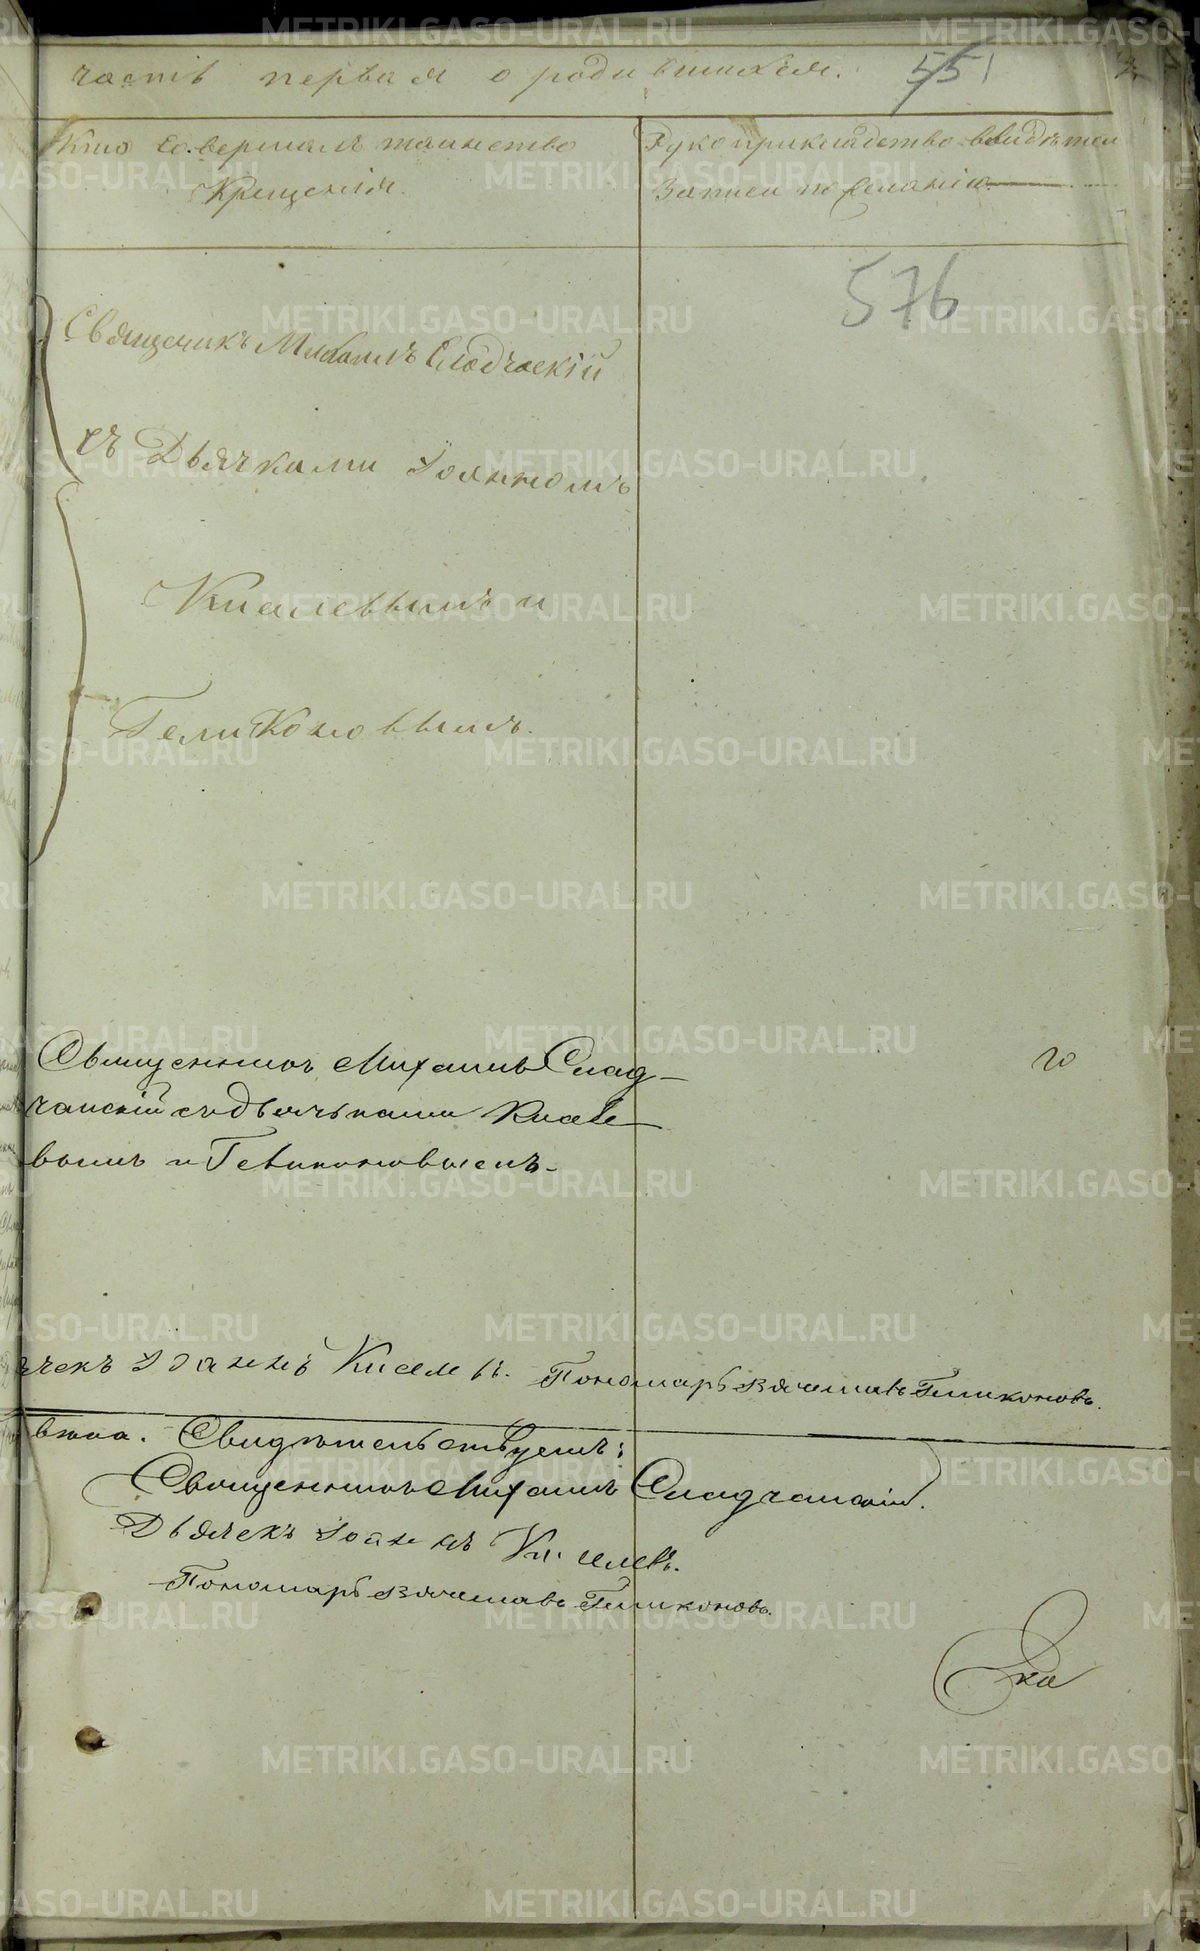 часть первая о родившихся. 551
Кто совершалъ таинство
Крещенія.
Рукоприкладство свидѣтел
записи по желанію
576
Священникъ Михаилъ Сладчаскій
съ Дьячками Іоанномъ
Киселевымъ и
Геликоновымъ.
Священникъ Михаилъ Слад-
чанскій съ дьячьками Кисе
вымъ и Геликоновымъ.
ячекъ Іоаннъ Киселевъ. Пономарь Вячеславъ Геликоновъ.
Свидѣтельствуемъ:
Священникъ Михаилъ Сладчанскій.
Дьячекъ Іоаннъ Киселевъ.
Пономарь Вячеславъ Геликоновъ.
METRIKI.GASO-URAL.RU